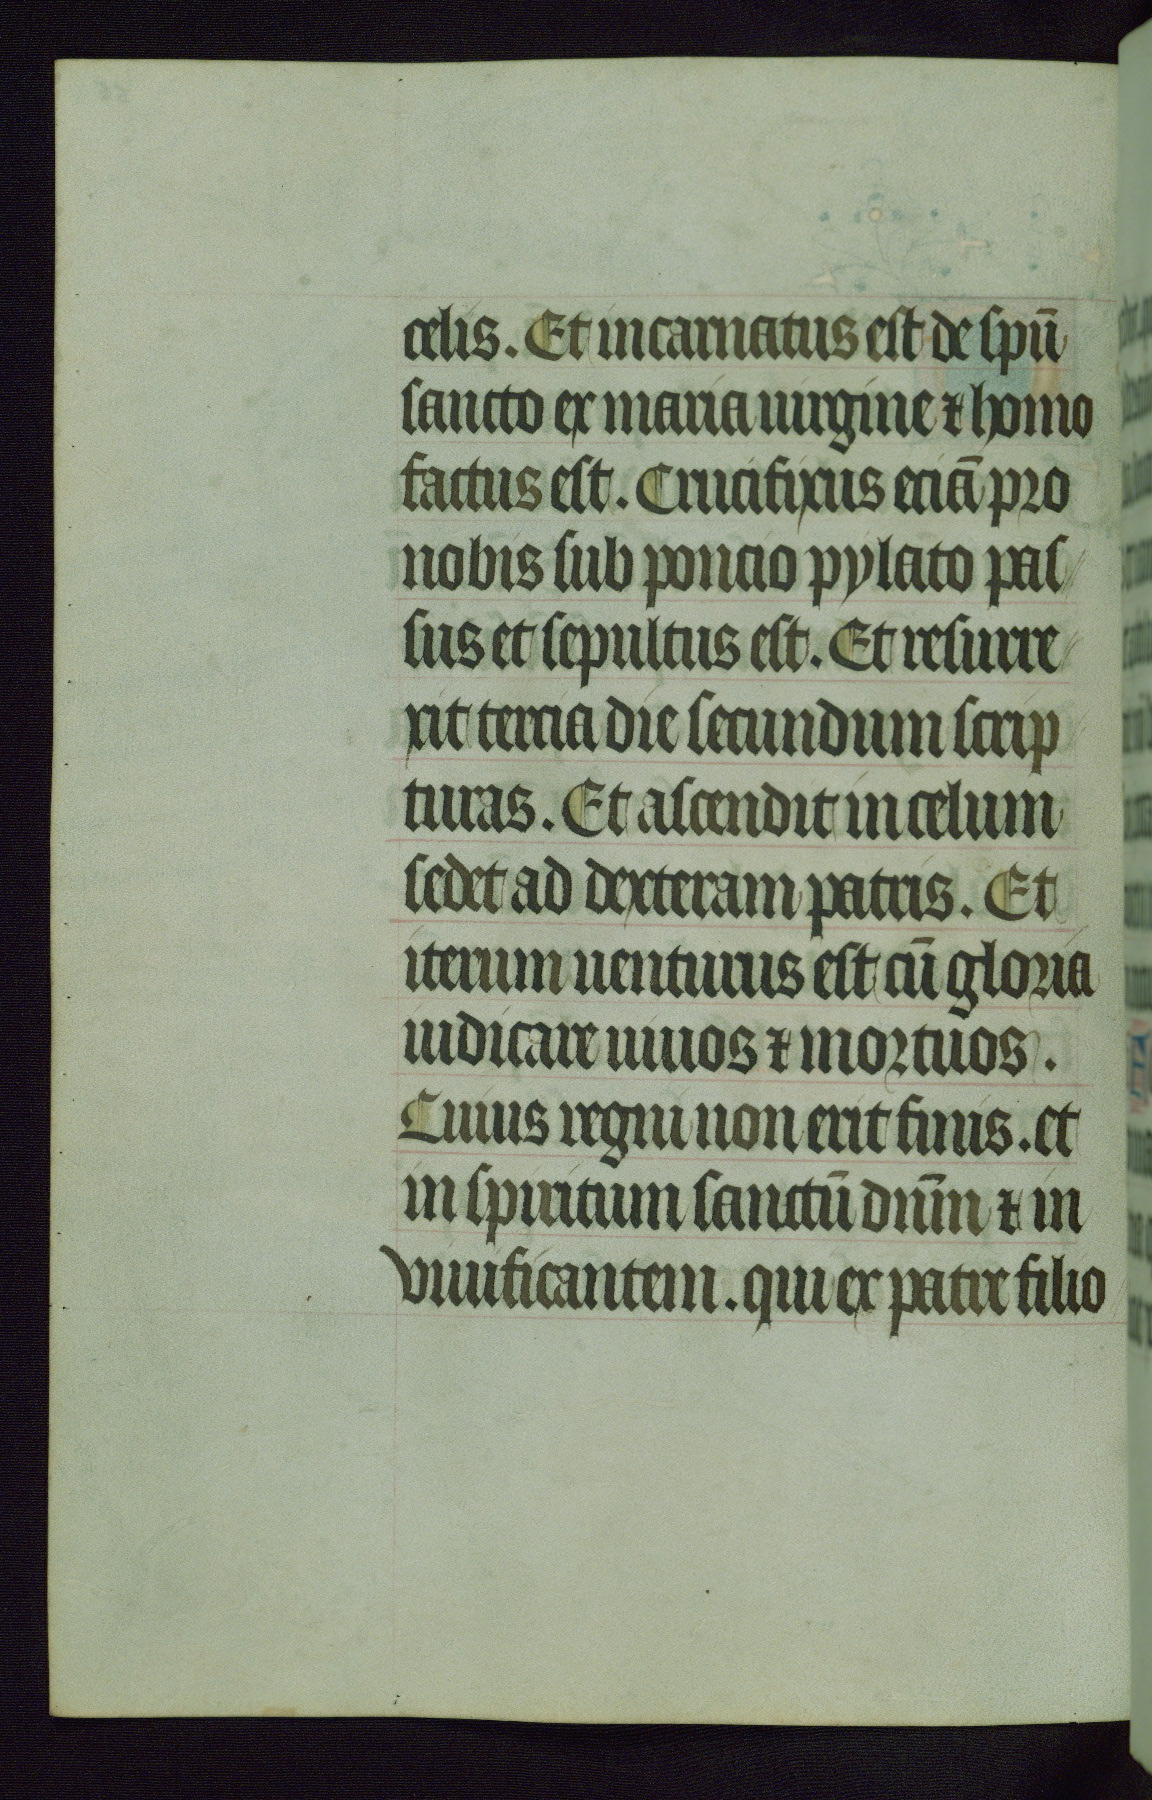 celis. Et incarnatus est de spū
sancto ex maria uirgine ⁊ homo
factus est. Crucifixus eciā pro
nobis sub poncio pylato pas
sus et sepultus est. Et resurre
xit tercia die secundum scrip
turas. Et ascendit in celum
sedet ad dexteram patris. Et
iterum uenturus est cū gloria
iudicare uiuos ⁊ mortuos.
Cuius regni non erit finis. et
in spiritum sanctū dnīm ⁊ in
viuificantem. qui ex patre filio